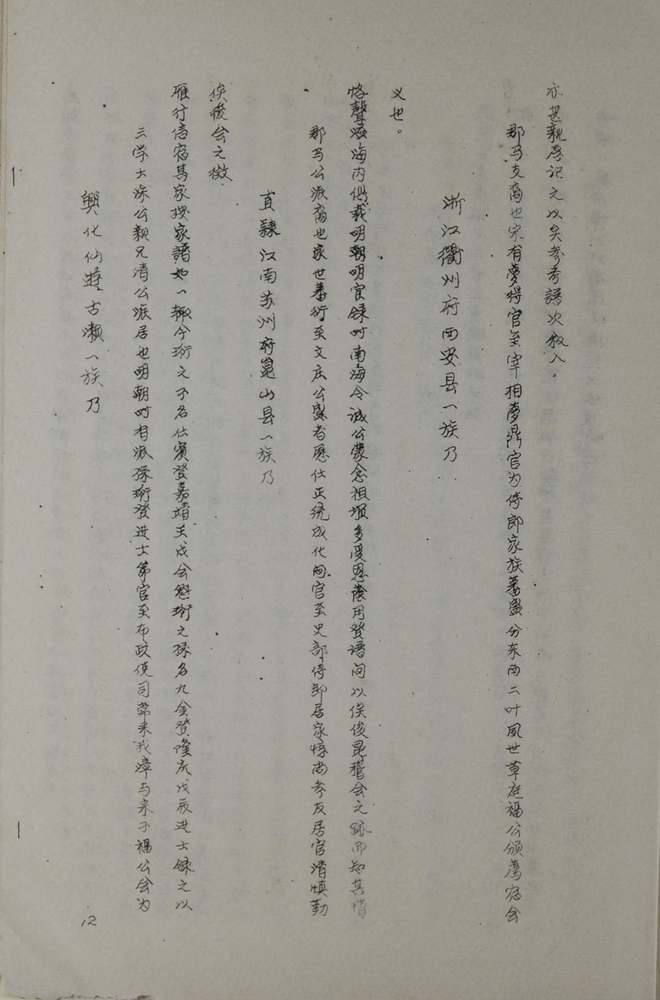 亦甚親厚記之以矣參考譜次叙入。
那马支裔也宋有夢得官至宰相夢鼎官为侍郎家族蕃盛分东西二叶凤世草庭福公颁荐宿会
浙江衢州府西安县一族乃
义也。
恪聲海内僃载明朝明官録时南海令诚公蒙念祖墳多受恩蔭用登语间以俟後昆稽会之跡而知其情
那马公派裔也家世蕃衍至文庄公盛者歷仕正统成化间官至史部侍郎居家惇尚孝友居官清慎勤
直隸江南苏州府崑山县一族乃
俟後会之徵
雁行信宿其家授家譜如一轍今珩之子名仕賓登嘉靖壬戌会魁珩之孫名九金登隆庆戊辰进士録之以
三学士深公親兄清公派居也明朝时有派孫珩登进士第官至布政使司常来我漳与宗子福公会为
興化仙遊古瀬一族乃
12